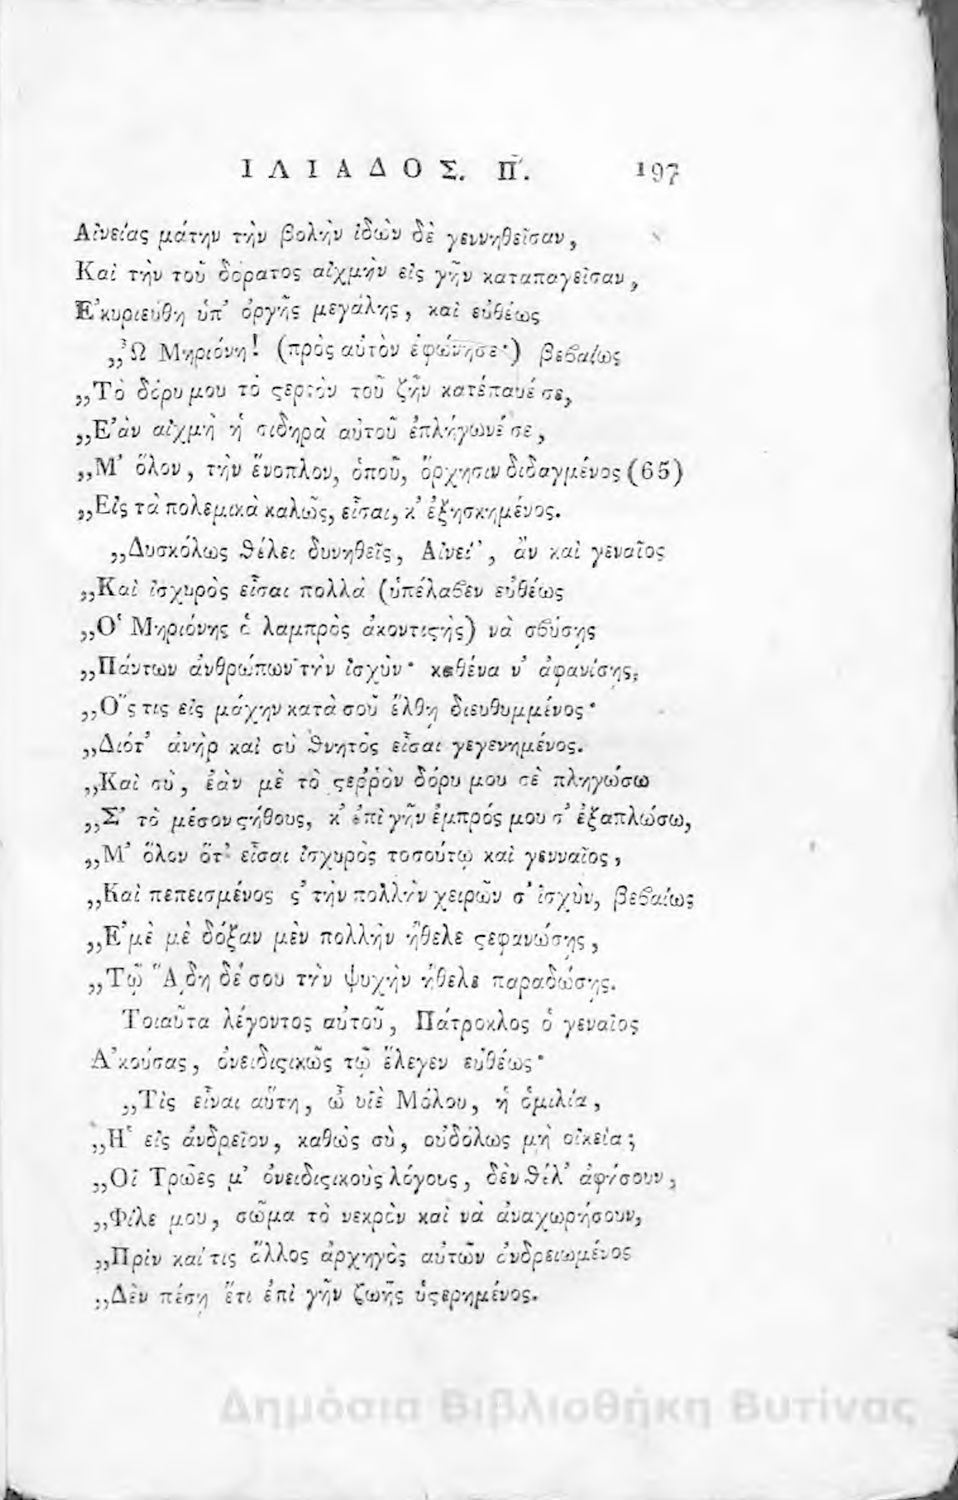 ΙΛΙΑΔΟΣ. Π΄. 197
Αἰνείας μάτην τὴν βολὴν ἰδὼν δὲ γεννηθεῖσαν,
Καὶ τὴν τοῦ δόρατος αἰχμὴν εἰς γῆν καταπαγεῖσαν,
Ἐκυριεύθη ὑπ' ὀργῆς μεγάλης, καὶ εὐθέως
„Ὦ Μηριόνη! (πρὸς αὐτὸν ἐφώνησε·) βεβαίως
„Τὸ δόρυ μου τὸ ϛερρὸν τοῦ ζῆν κατέπαυέ σε,
„Ἐὰν αἰχμὴ ἡ σιδηρὰ αὐτοῦ ἐπλήγωνέ σε,
„Μ' ὅλον, τὴν ἔνοπλον, ὁποῦ, ὄρχησιν διδαγμένος (65)
„Εἰς τὰ πολεμικὰ καλῶς, εἶσαι, κ' ἐξησκημένος.
„Δυσκόλως θέλει δυνηθεῖς, Αἰνεί', ἂν καὶ γεναῖος
„Καὶ ἰσχυρὸς εἶσαι πολλὰ (ὑπέλαβεν εὐθέως
„Ὁ Μηριόνης ὁ λαμπρὸς ἀκοντιϛὴς) νὰ σβύσῃς
„Πάντων ἀνθρώπων τὴν ἰσχὺν· καθένα ν' ἀφανίσῃς,
„Ὅς τις εἰς μάχην κατὰ σοῦ ἔλθῃ διευθυμμένος·
„Διότ' ἀνὴρ καὶ σὺ θνητὸς εἶσαι γεγενημένος.
„Καὶ σὺ, ἐὰν μὲ τὸ ϛερῤὸν δόρυ μου σὲ πληγώσω
„Σ' τὸ μέσον ϛήθους, κ' ἐπὶ γῆν ἐμπρός μου σ' ἐξαπλώσω,
„Μ' ὅλον ὅτ' εἶσαι ἰσχυρὸς τοσούτῳ καὶ γενναῖος,
„Καὶ πεπεισμένος ϛ' τὴν πολλὴν χειρῶν σ' ἰσχὺν, βεβαίως
„Ἐμὲ μὲ δόξαν μὲν πολλὴν ἤθελε ϛεφανώσῃς,
„Τῷ ᾍδῃ δέ σου τὴν ψυχὴν ἤθελε παραδώσῃς.
Τοιαῦτα λέγοντος αὐτοῦ, Πάτροκλος ὁ γεναῖος
Ἀκούσας, ὀνειδιϛικῶς τῷ ἔλεγεν εὐθέως·
„Τὶς εἶναι αὕτη, ὦ υἱὲ Μόλου, ἡ ὁμιλία,
„Ἡ εἰς ἀνδρεῖον, καθὼς σὺ, οὐδόλως μὴ οἰκεία;
„Οἱ Τρῶες μ' ὀνειδιϛικοὺς λόγους, δὲν θέλ' ἀφήσουν,
„Φίλε μου, σῶμα τὸ νεκρὸν καὶ νὰ ἀναχωρήσουν,
„Πρὶν καί τις ἄλλος ἀρχηγὸς αὐτῶν ἀνδρειωμένος
„Δὲν πέσῃ ἔτι ἐπὶ γῆν ζωῆς ὑϛερημένος.
Δημόσια Βιβλιοθήκη Βυτίνας